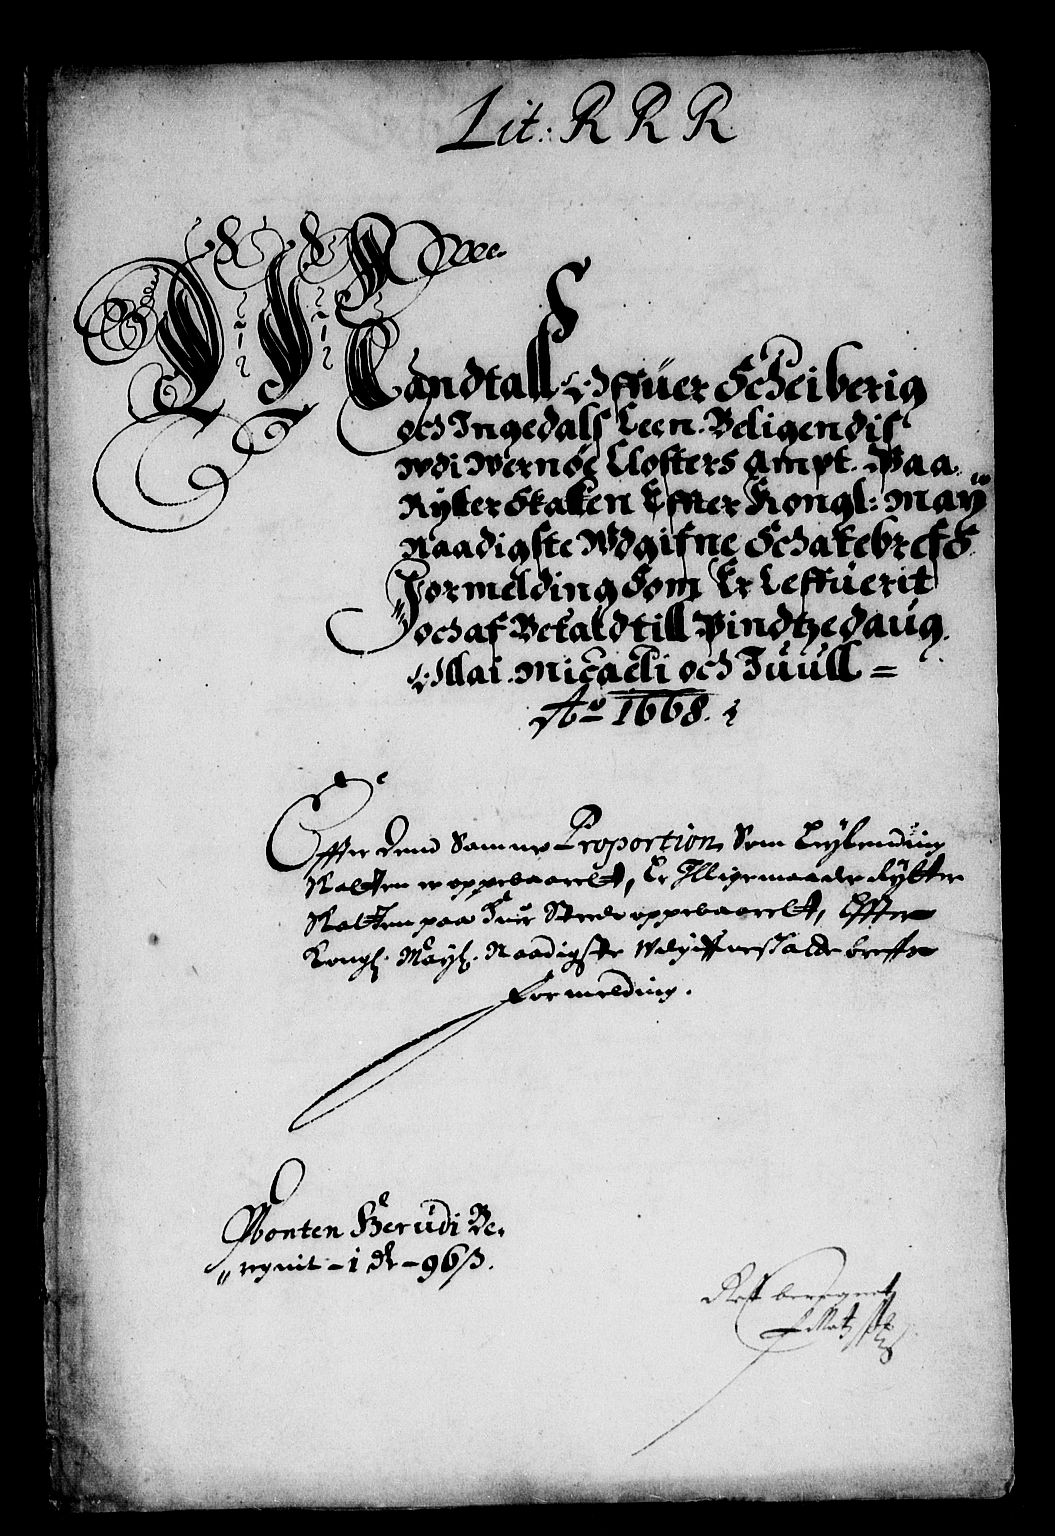 Lit: R R R
J J R
Mandtall Offuer Scheiberig
och Ingedals Leen. Beligendis
wdi Wernöe Closters Ampt. Paa
Rytter Skatten Effter Kongl: May
Naadigste Wdgifne Schatebrefs
Formelding Som Er Leffuerit
och af Betaldt till Pindtzedaug
Ollai. Micaeli och Juull =
Ao 1668.
Effter dend Samme Proportion, Som Leylending
Skatten er oppebaarelt, Er Jlligemaade Rytter
Skatten paa huer Stede oppebaarelt, Effter
Kongl. Mayſ. Naadigste Wdgiffne skatte breffs
Formelding.
Ponten Herudi Be,
regnit - 1 dr - 96 β.
Rest beregnet